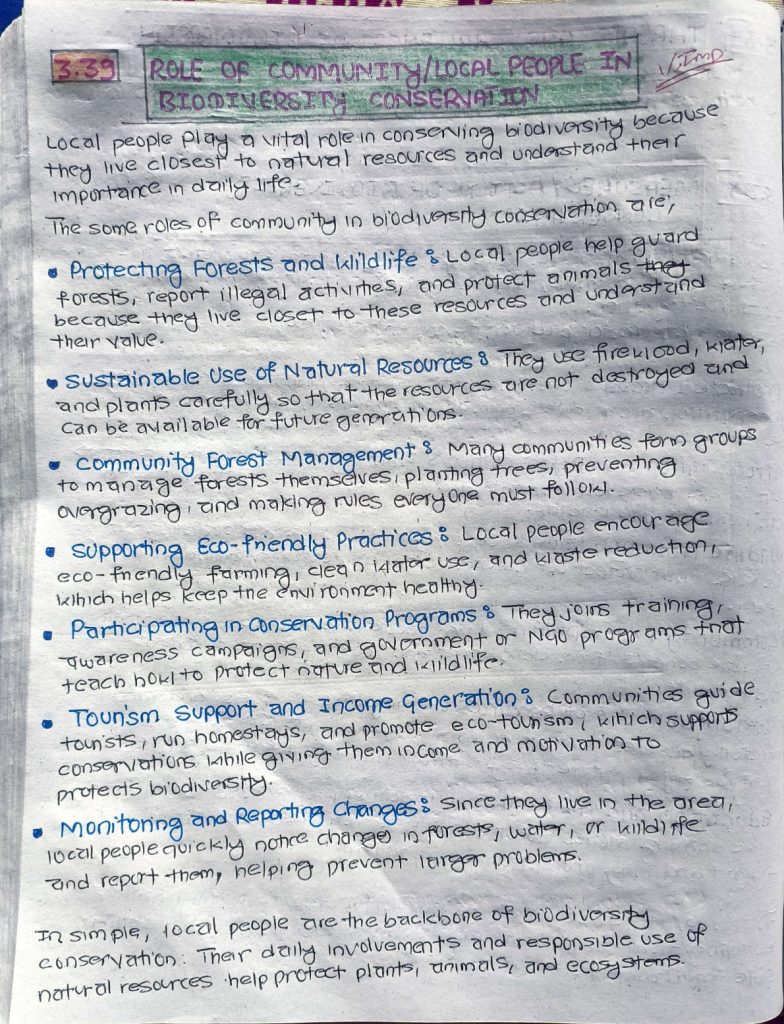 3.39 ROLE OF COMMUNITY/LOCAL PEOPLE IN V.Imp
BIODIVERSITY CONSERVATION
Local people play a vital role in conserving biodiversity because
they live closest to natural resources and understand their
importance in daily life.
The some roles of community in biodiversity conservation are,
• Protecting Forests and Wildlife : Local people help guard
forests, report illegal activities, and protect animals they
because they live closer to these resources and understand
their value.
• Sustainable Use of Natural Resources : They use firewood, water,
and plants carefully so that the resources are not destroyed and
can be available for future generations.
• Community Forest Management : Many communities form groups
to manage forests themselves, planting trees, preventing
overgrazing, and making rules everyone must follow.
• Supporting Eco-friendly Practices : Local people encourage
eco-friendly farming, clean water use, and waste reduction,
which helps keep the environment healthy.
• Participating in Conservation Programs : They joins training,
awareness campaigns, and government or NGO programs that
teach how to protect nature and wildlife.
• Tourism Support and Income Generation : Communities guide
tourists, run homestays, and promote eco-tourism, which supports
conservations while giving them income and motivation to
protects biodiversity.
• Monitoring and Reporting Changes : Since they live in the area,
local people quickly notice changes in forests, water, or wildlife
and report them, helping prevent larger problems.
In simple, local people are the backbone of biodiversity
conservation. Their daily involvements and responsible use of
natural resources help protect plants, animals, and ecosystems.